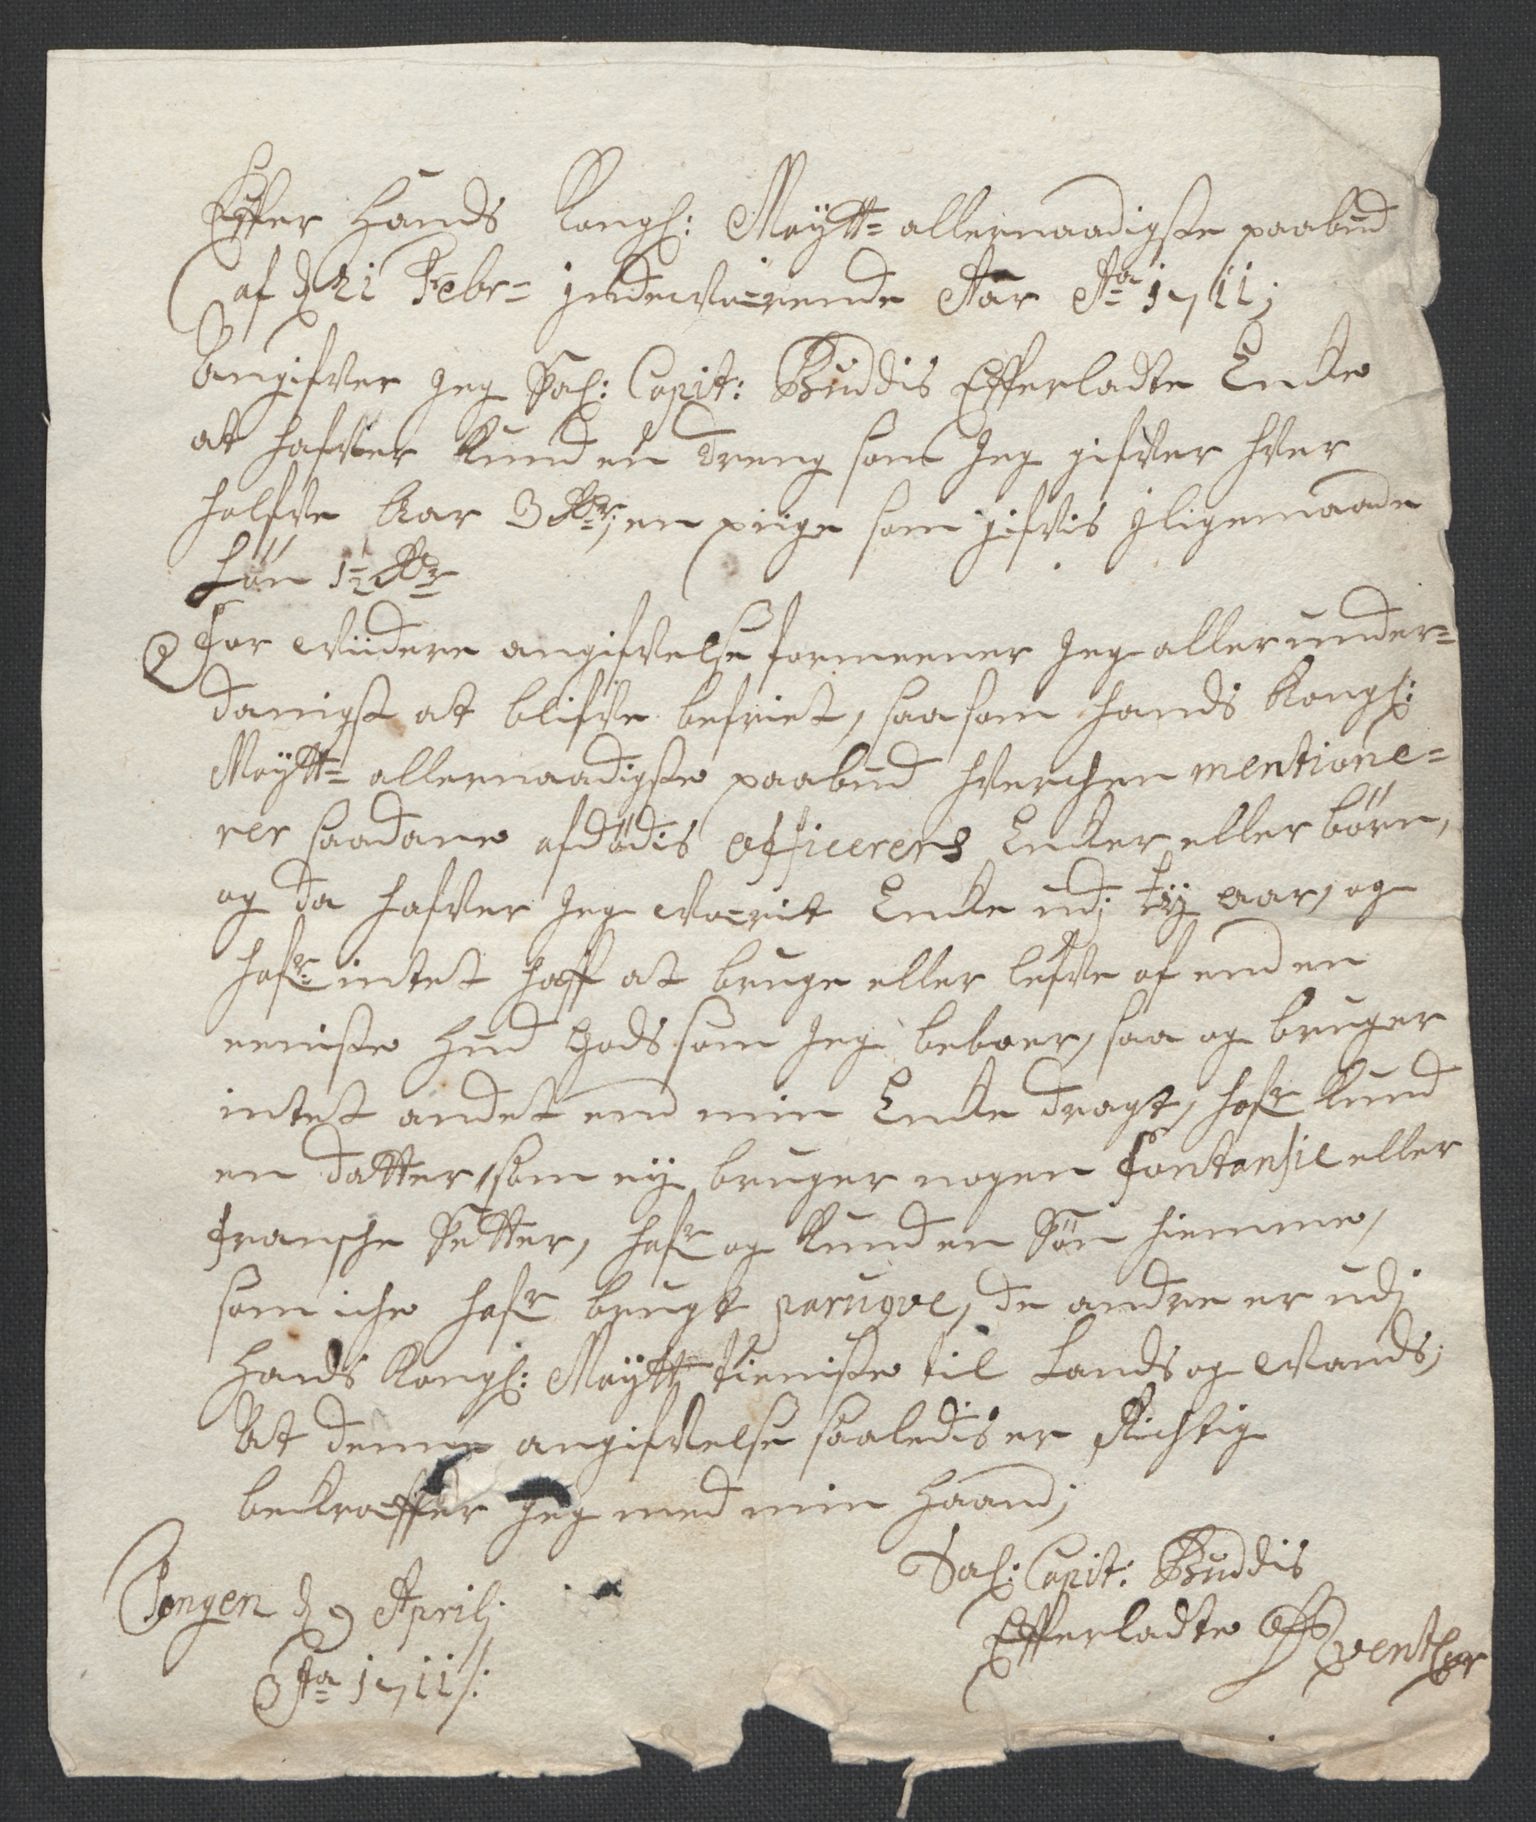 Effter Hands Kongl: Maÿtt= allernaadigste paabud
af d 21 Febr= indeværende Aar Ao 1711;
Angifver Jeg Sal: Capit: Buddis Efferladte Encke
at hafver kund en dreng som Jeg gifver hver
halfve Aar 3 Rdr; en piige som gifvis Jligemaade
Løn 1½ Rdr
For viidere angifvelse formeener Jeg allerunder=
danigst at blifve befriet, saasom hands Kongl:
Maÿtt= allernaadigste paabud hverchen mentione=
rer saadane afdødis officerers Encker eller børn,
og da hafver Jeg værit Encke udj tÿ aar, og
hafr intet haff at bruge eller lefve af end en
eeniste Hud Gods som Jeg beboer, saa og bruger
intet andet end min Encke dragt, hafr kund
en datter, som eÿ bruger nogen Fontansie eller
Fransche Setter, hafr og kund en Søn hiemme,
som iche hafr brugt paruque, de andre er udj
Hands Kongl: Maÿtt tieniste til Lands og Vands;
At denne angifvelse saaledis er Richtig
bekræffter Jeg med min Haand;
Tongen d 9 Aprilj
Ao 1711/:
Sal: Capit: Buddis
Efferladte